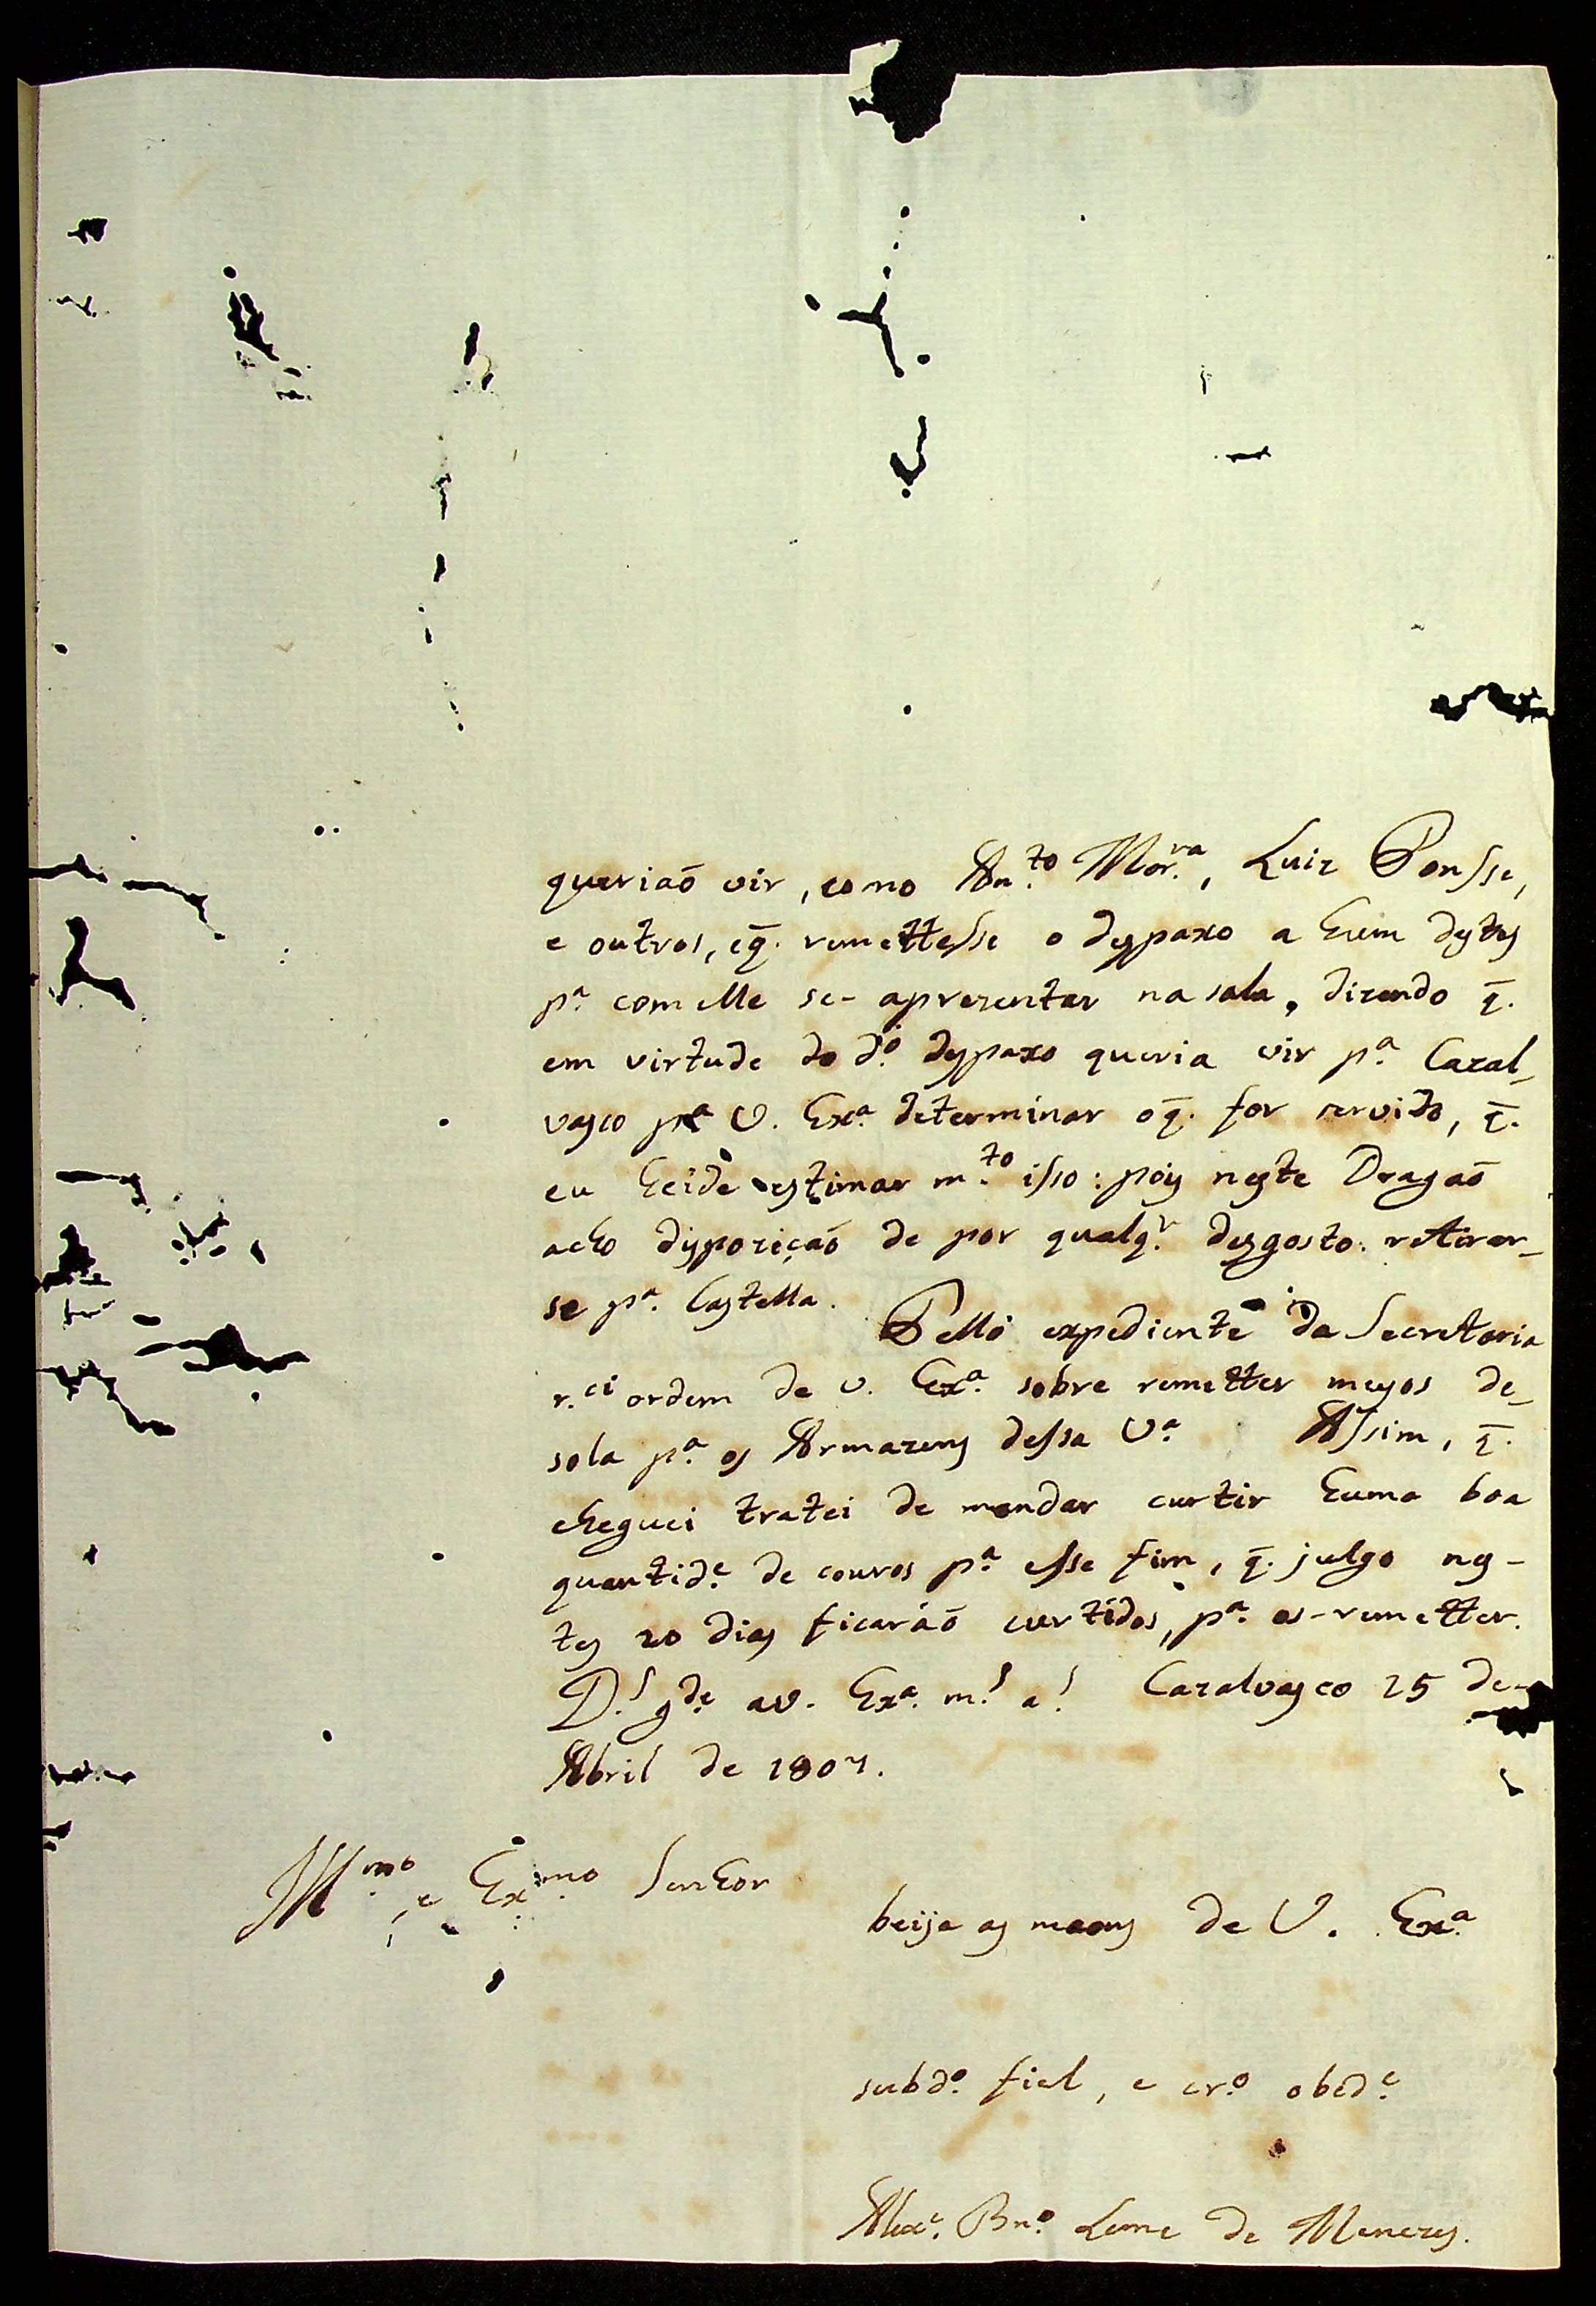 queriaõ vir, como An.to Mor.ra, Luiz Ponsse,
e outros, eq̃. remettesse o despaxo a hum destes
p.a com elle se-aprezentar na sala, dizendo q̃.
em virtude do d.o despaxo queria vir p.a Cazal_
vasco p.a V. Ex.a determinar oq̃. for servido, q̃.
eu heide estimar m.to isso: pois neste Dragaõ
acho dispoziçaõ de por qualq.r desgosto retirar_
se p.a Castella.
Pello expediente da Secretaria
r.ci ordem de V. Ex.a sobre remetter meyos de_
sola p.a os Armazens dessa V.a Assim, q̃.
cheguei tratei de mandar curtir huma boa
quantid.e de couros p.a esse fim, q̃. julgo nes-
tes 20 dias ficaráõ curtidos, p.a os-remetter.
D.s g.de aV. Ex.a m.s a.s Cazalvasco 25 de
Abril de 1804.
Ill.mo e Ex.mo Senhor
beija as maons de V. Ex.a
subd.o fiel, e cr.o obed.e
Alex.e B.no Leme de Menezes.